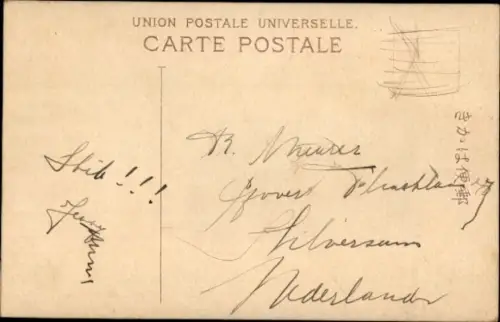 UNION POSTALE UNIVERSELLE.
CARTE POSTALE
きかは便郵
Stik!!!
R. Meurer
Govert
Hilversum
Nederland